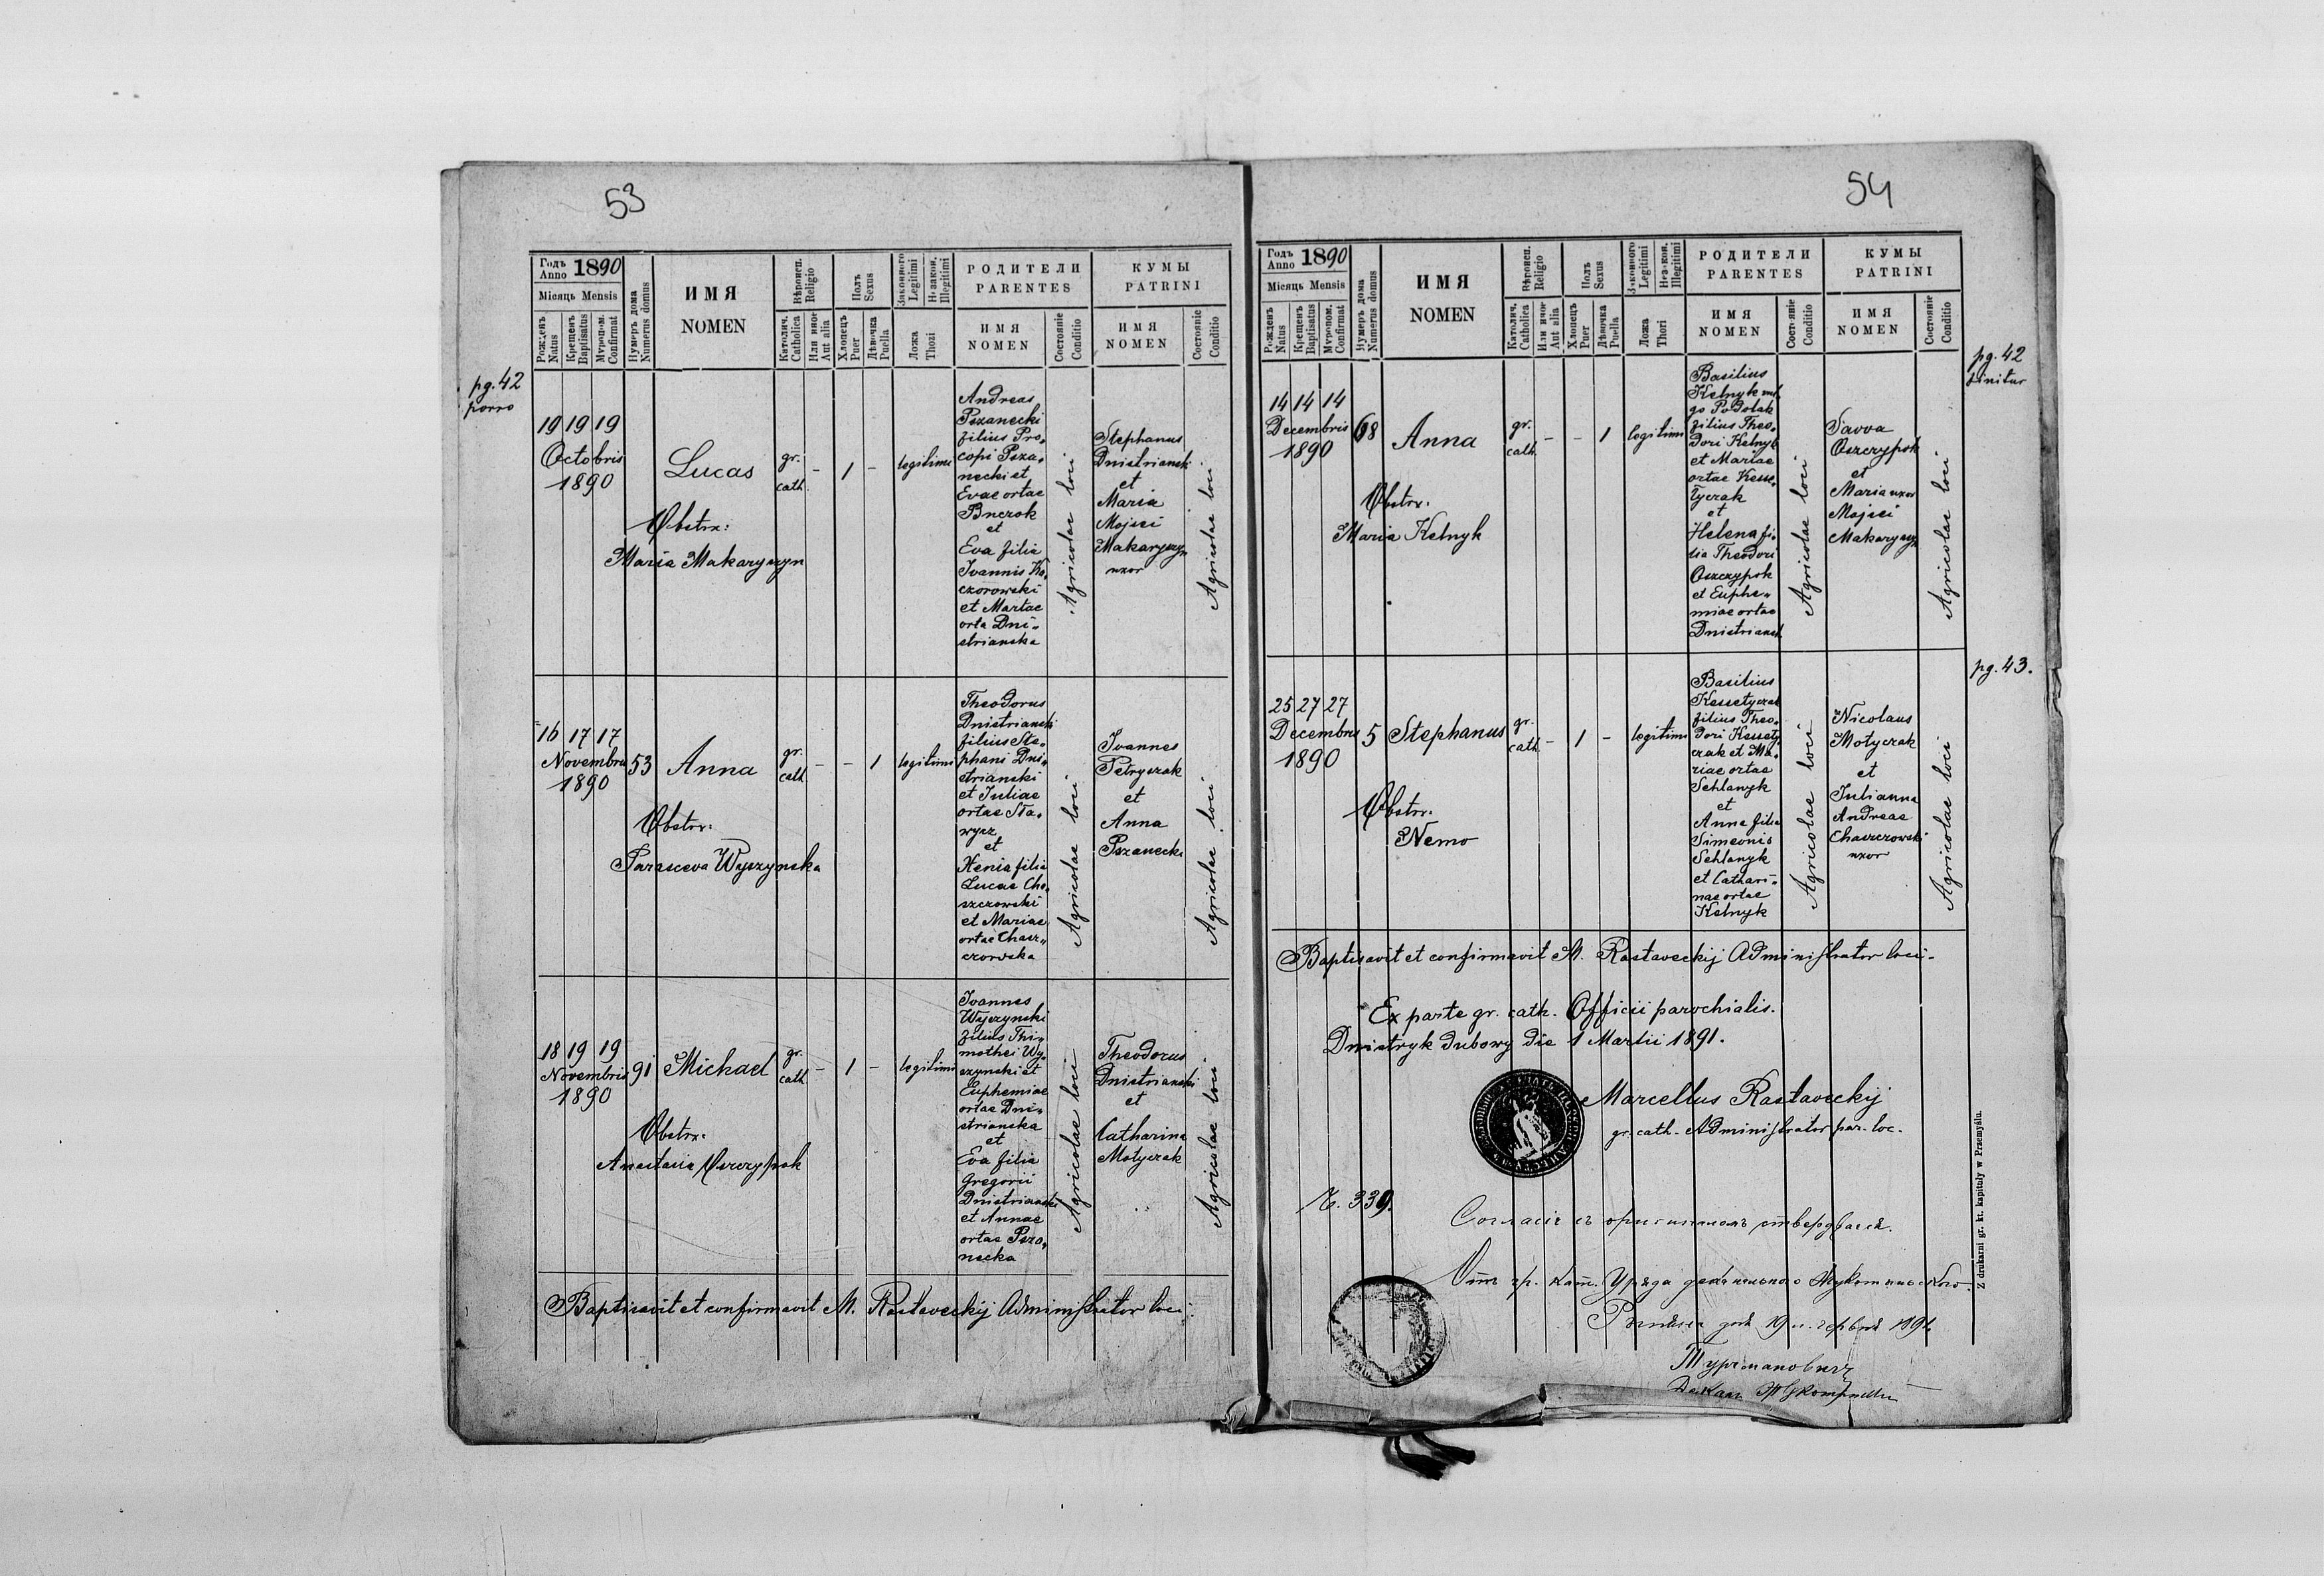 53
Годъ Anno 1890
Місяць Mensis
Рожденъ Natus
Крещенъ Baptisatus
Муропом. Confirmat
Нумеръ дома Numerus domus
ИМЯ
NOMEN
Вѣроисп. Religio
Католич. Catholica
Или иное Aut alia
Полъ Sexus
Хлопецъ Puer
Дѣвочка Puella
Законного Legitimi
Незакон. Illegitimi
Ложа Thori
РОДИТЕЛИ
PARENTES
ИМЯ
NOMEN
Состояніе Conditio
КУМЫ
PATRINI
ИМЯ
NOMEN
Состояніе Conditio
pg. 42
porro
19 19 19
Octobris
1890
Lucas
gr.
cath.
-
1
-
legitimi
Andreas
Pszanecki
filius Pro-
copi Psza-
necki et
Evae ortae
Bnczok
et
Eva filia
Ivannis Ko-
czorowski
et Martae
orta Dni-
strianska
Agricolae loci
Stephanus
Dnistrianski
et
Maria
Mojsei
Makaryczyn
uxor
Agricolae loci
Obstrx:
Maria Makaryczyn
16 17 17
Novembris
1890
53
Anna
gr.
cath.
-
-
1
legitimi
Theodorus
Dnistrianski
filius Ste-
phani Dni-
strianski
et Juliae
ortae Sta-
wycz
et
Xenia filia
Lucae Cha-
szczowski
et Mariae
ortae Chasz-
czowska
Agricolae loci
Ivannes
Petryczak
et
Anna
Pszanecki
Agricolae loci
Obstr:
Parasceva Wyszynska
18 19 19
Novembris
1890
91
Michael
gr.
cath
-
1
-
legitimi
Ivannes
Wyszynski
filius Thi-
mothei Wy-
szynski et
Euphemiae
ortae Dni-
strianska
et
Eva filia
Gregorii
Dnistrianski
et Annae
ortae Psza-
necka
Agricolae loci
Theodorus
Dnistrianski
et
Catharina
Motyczak
Agricolae loci
Obstrx:
Anastasia Oszczypok
Baptisavit et confirmavit M. Rastaveckij Administrator loci.
54
Годъ Anno 1890
Місяць Mensis
Рожденъ Natus
Крещенъ Baptisatus
Муропом. Confirmat
Нумеръ дома Numerus domus
ИМЯ
NOMEN
Вѣроисп. Religio
Католич. Catholica
Или иное Aut alia
Полъ Sexus
Хлопецъ Puer
Дѣвочка Puella
Законного Legitimi
Незакон. Illegitimi
Ложа Thori
РОДИТЕЛИ
PARENTES
ИМЯ
NOMEN
Состояніе Conditio
КУМЫ
PATRINI
ИМЯ
NOMEN
Состояніе Conditio
pg. 42
finitur
14 14 14
Decembris
1890
68
Anna
gr.
cath.
-
-
1
legitimi
Basilius
Kelnyk vul-
go Podolak
filius Theo-
dori Kelnyk
et Mariae
ortae Kesse-
tyczak
et
Helena fi-
lia Theodori
Oszczypok
et Euphe-
miae ortae
Dnistrianski
Agricolae loci
Savva
Oszczypok
et
Maria uxor
Mojsei
Makaryczyn
Agricolae loci
Obstr:
Maria Kelnyk
pg. 43.
25 27 27
Decembris
1890
5
Stephanus
gr.
cath
-
1
-
legitimi
Basilius
Kessetyczak
filius Theo-
dori Kessety-
czak et Ma-
riae ortae
Schlanyk
et
Anna filia
Simeonis
Schlanyk
et Cathari-
nae ortae
Kelnyk
Agricolae loci
Nicolaus
Motyczak
et
Julianna
Andreae
Chaszczowski
uxor
Agricolae loci
Obstr:
Nemo
Baptisavit et confirmavit M. Rastaveckij Administrator loci.
Ex parte gr. cath. Officii parochialis.
Dnistryk dubowy die 1 Martii 1891.
Marcellus Rastaveckij
gr. cath. Administrator par. loc.
339.
Согласіе съ оригиналомъ стверджаеся.
Отъ гр. кат. Уряда деканального Жукотинского.
дня 19 червня 1891.
Деканъ
Z drukarni gr. kt. kapituły w Przemyślu.